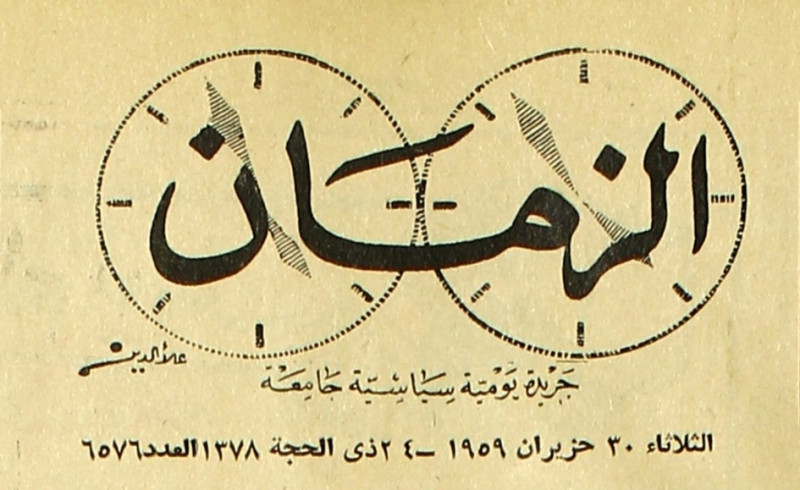 الزمان
علاءالدين
جريدة يومية سياسية جامعة
الثلاثاء ٣٠ حزيران ١٩٥٩ – ٢٤ ذى الحجة ١٣٧٨ العدد ٦٥٧٦